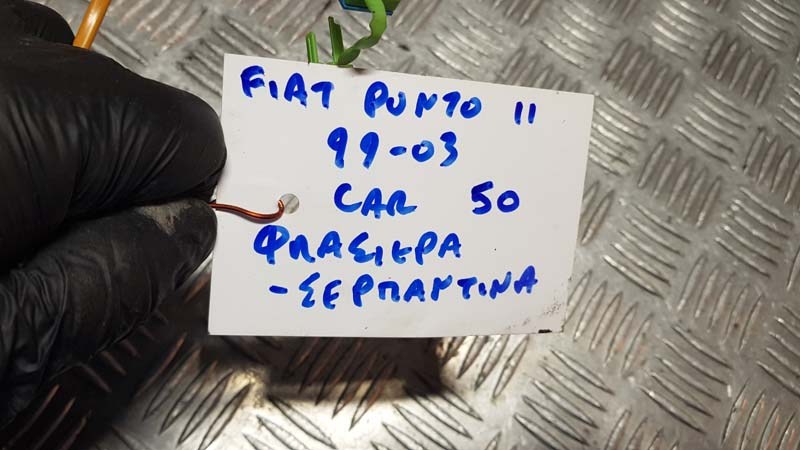 FIAT PUNTO II
99-03
CAR 50
ΦΛΑΣΙΕΡΑ
-ΣΕΡΠΑΝΤΙΝΑ